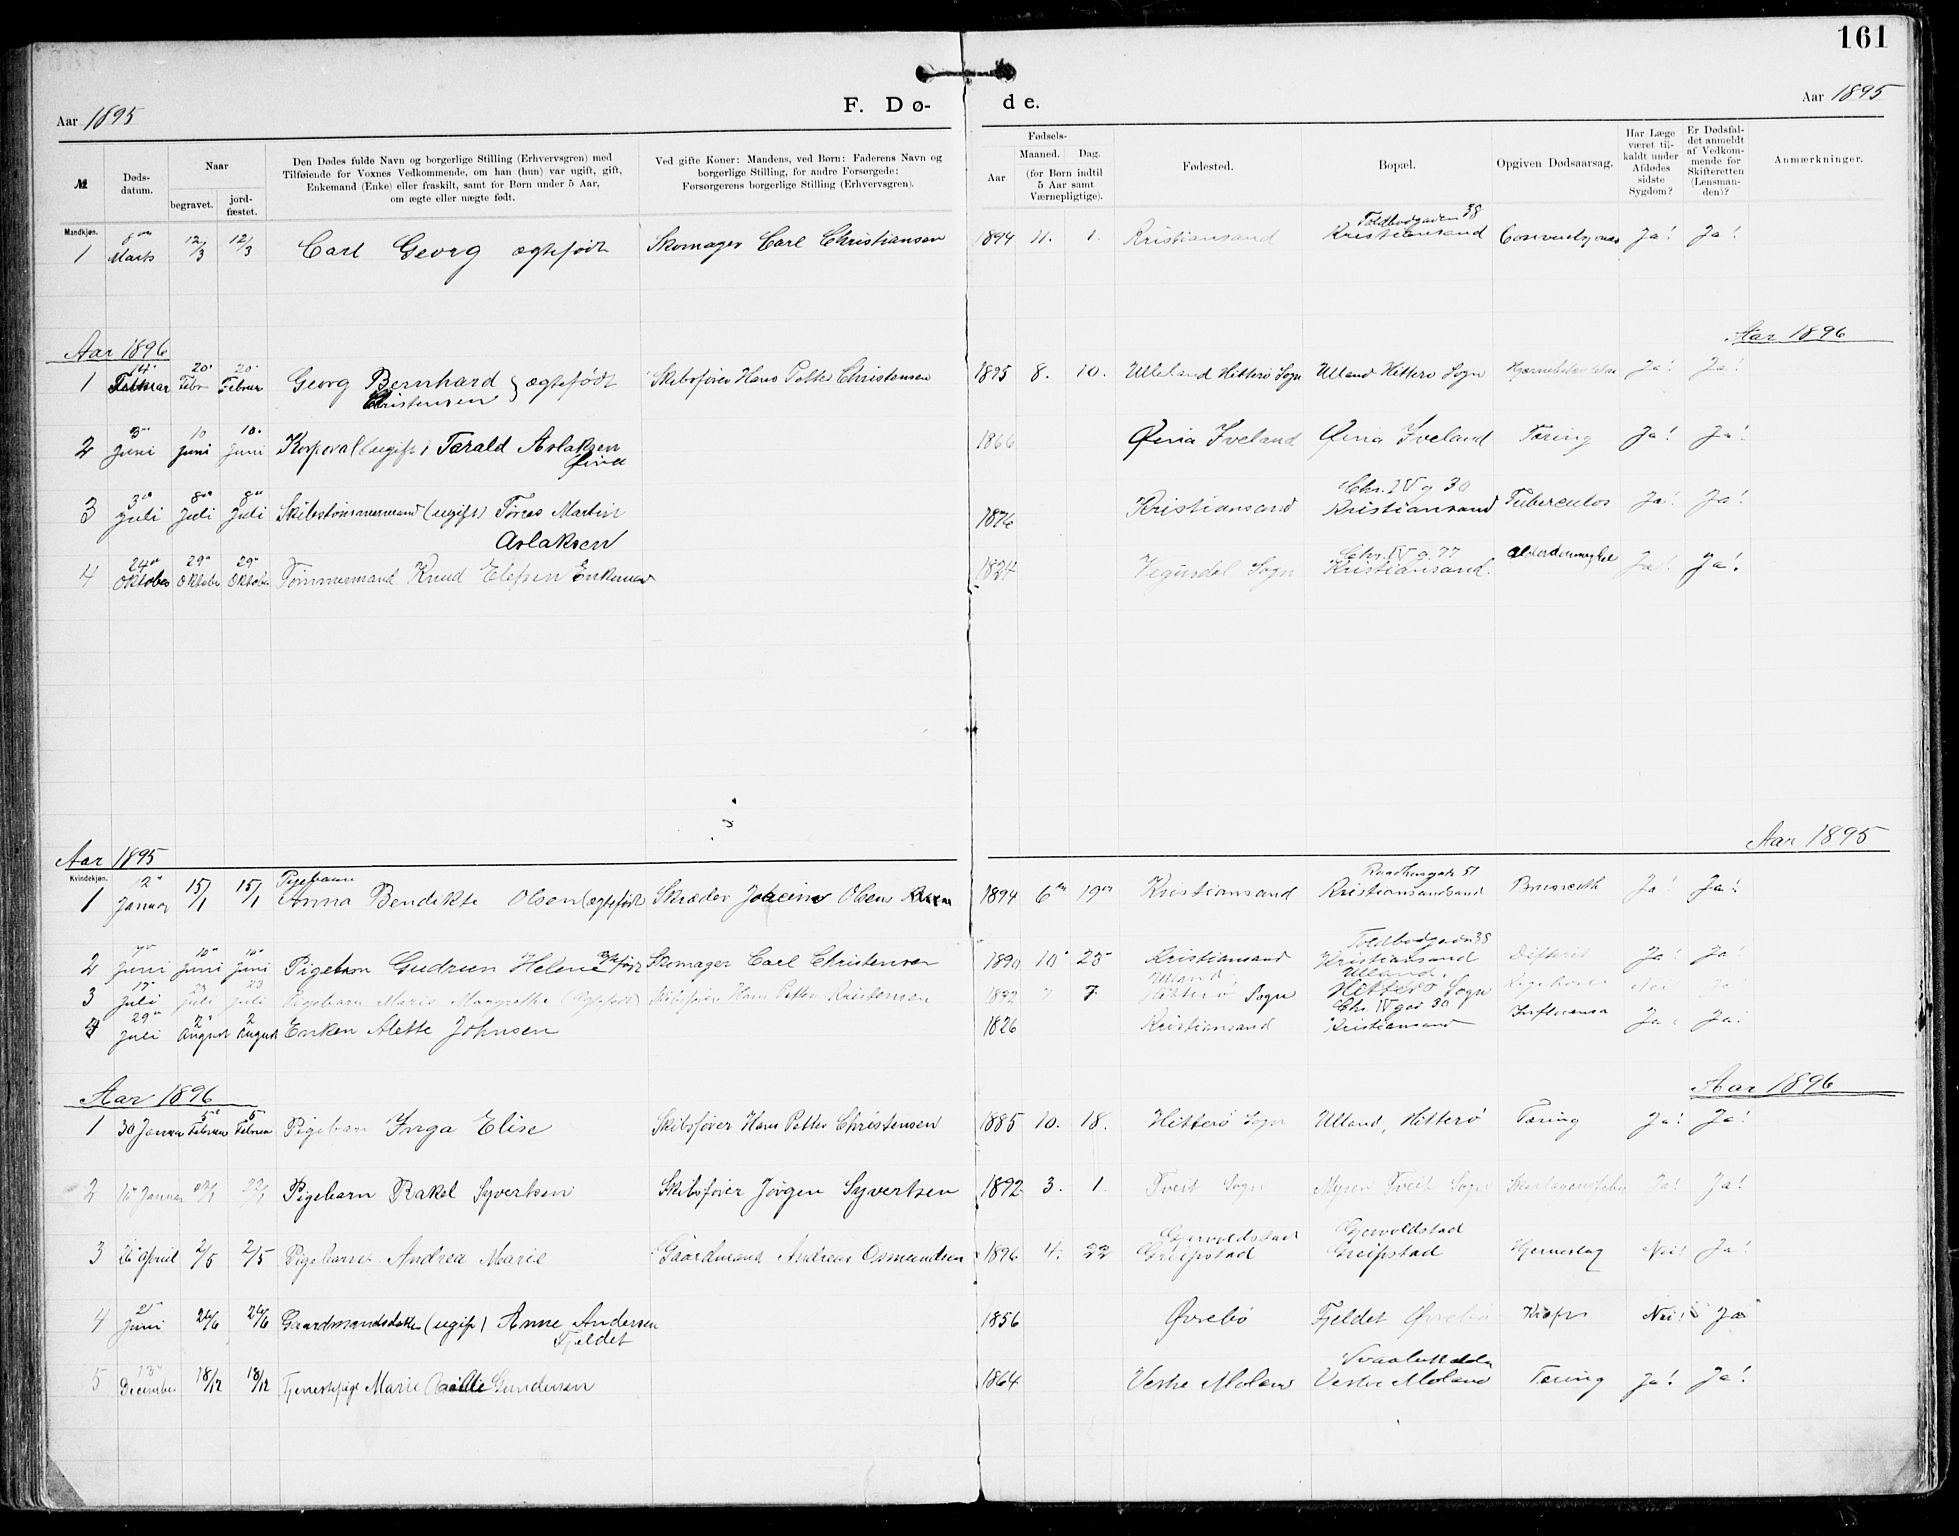 161
Aar 1895
F. Dø-
de.
Aar 1895
№
Døds-
datum.
Naar
begravet.
jord-
fæstet.
Den Dødes fulde Navn og borgerlige Stilling (Erhvervsgren) med
Tilføiende for Voxnes Vedkommende, om han (hun) var ugift, gift,
Enkemand (Enke) eller fraskilt, samt for Børn under 5 Aar,
om ægte eller uægte født.
Ved gifte Koner: Mandens, ved Børn: Faderens Navn og
borgerlige Stilling, for andre Forsørgede:
Forsørgerens borgerlige Stilling (Erhvervsgren).
Fødsels-
Aar
Maaned.
Dag.
(for Børn indtil
5 Aar samt
Værnepligtige).
Fødested.
Bopæl.
Opgiven Dødsaarsag.
Har Læge
været til-
kaldt under
Afdødes
sidste
Sygdom?
Er Dødsfal-
det anmeldt
af Vedkom-
mende for
Skifteretten
(Lensman-
den)?
Anmærkninger.
Mandkjøn.
Toldbodgaden 38
1 Marts 12/3 12/3 Carl Georg ægtefødt Skomager Carl Christiansen 1894 11. 1. Kristiansand Kristiansand Ja! Ja!
Aar 1896
Aar 1896
14 20 20
1 Februar Febr Februar Georg Bernhard ægtefødt Skibsfører Hans Petter Christensen 1895 8. 10. Ulleland Hitterø Sogn Ulland Hitterø Sogn Ja! Ja!
Christensen
3 10 10.
2 Juni Juni Juni Korporal (ugift) Tarald Aslaksen 1866 Øvria Iveland Øvria Iveland Tæring Ja! Ja!
3 8 8 Chr. IV g 30
3 Juli Juli Juli Skibstømmermand (ugift) Martin 1876 Kristiansand Kristiansand Tuberculos Ja! Ja!
Aslaksen
24 29 29 Chr. IV g 77
4 Oktober Oktober Oktober Tømmermand Knud Elefsen Enkemand 1824 Vegusdal Sogn Kristiansand. Ja! Ja!
Aar 1895
Aar 1895
Kvindekjøn.
12 Pigebarn 51
1 Januar 15/1 15/1 Anna Bendikte Olsen (ægtefødt Skræder Olsen 1894 6 19 Kristiansand Kristiansand Ja! Ja!
7 10 10 Toldbodgaden 38
2 Juni Juni Juni Pigebarn Gudrun Helene ægtefødt Skomager Carl Christensen 1890 10 25 Kristiansand Kristiansand Difterit Ja! Ja!
17 23 23 Ulland Ulland.
3 Juli Juli Juli Pigebarn Marie Margrethe (ægtefødt) Skibsfører Hans Petter Kristensen 1892 7 7. Hitterø Sogn Hitterø Sogn Nei! Ja!
29 2 2 Chr. IV gad 30
4 Juli August August Enken Alette Johnsen 1826 Kristiansand Kristiansand Influensa Ja! Ja!
Aar 1896
Aar 1896
5 5
1 30 Januar Februar Februar Pigebarn Inga Elise Skibsfører Hans Petter Christensen 1885 10. 18. Hitterø Sogn Ulland, Hitterø Tæring Ja! Ja!
2 Januar 22/1 22/1 Pigebarn Rakel Syvertsen Skibsfører Jørgen Syvertsen 1892 3. 1. Tveit Sogn Myren Tveit Sogn Ja! Ja!
Gjervoldstad Gjervoldstad
3 26 April 2/5 2/5 Pigebarnet Andrea Marie Gaardmand Andreas Osmundsen 1896 4. 22 Greipstad Greipstad Hjerneslag Nei! Ja!
4 Juni 26/6 26/6 Gaardmandsdatter (ugift) Anne Andersen 1856 Øvrebø Fjeldet Øvrebø Kræft Nei! Ja
Fjeldet
13
5 December 18/12 18/12 Tjenestepige Marie Gundersen 1864 Vestre Moland Vestre Moland Tæring Ja! Ja!